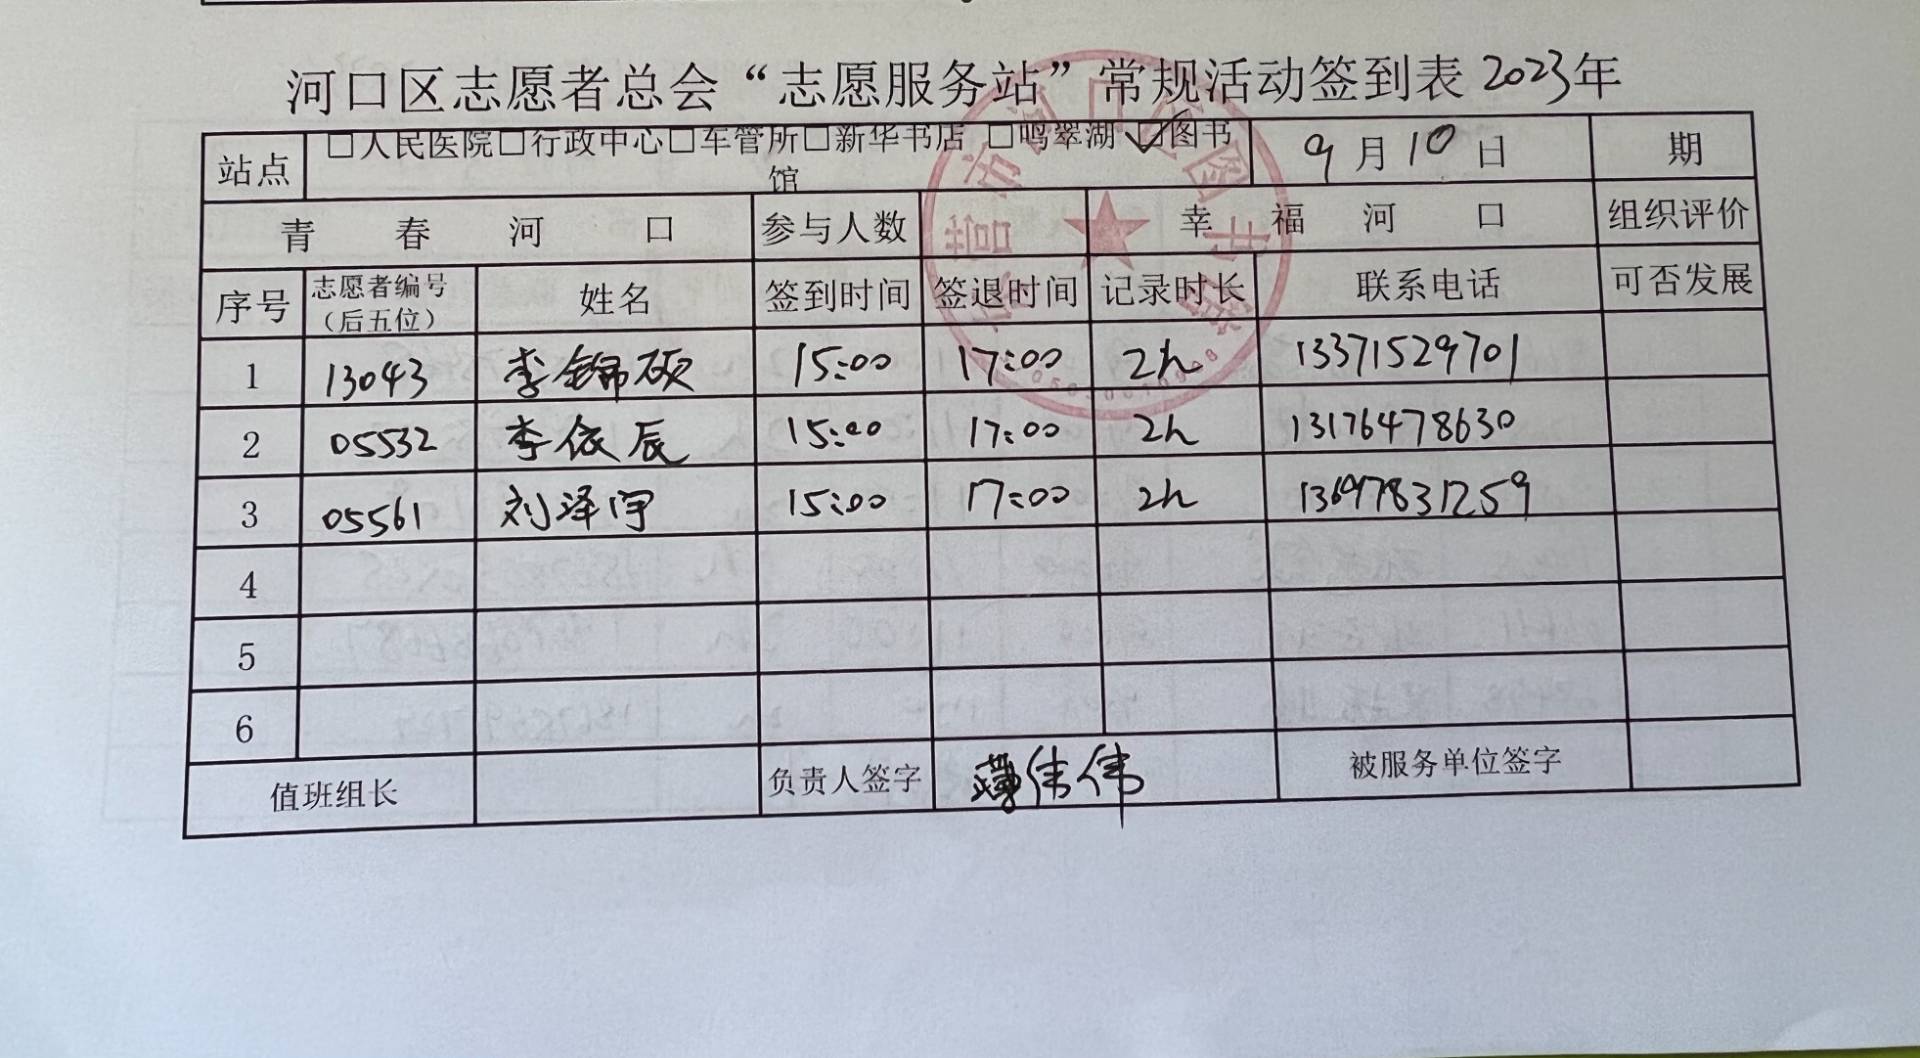 河口区志愿者总会“志愿服务站”常规活动签到表 2023年
站点 □人民医院□行政中心□车管所□新华书店 □鸣翠湖 ☑图书馆 9月10日 期
青春河口 参与人数 幸福河口 组织评价
序号 志愿者编号（后五位） 姓名 签到时间 签退时间 记录时长 联系电话 可否发展
1 13043 李锦硕 15:00 17:00 2h 13371529701
2 05532 李依辰 15:00 17:00 2h 13176478630
3 05561 刘泽宇 15:00 17:00 2h 13697831259
4
5
6
值班组长 负责人签字 薄伟伟 被服务单位签字